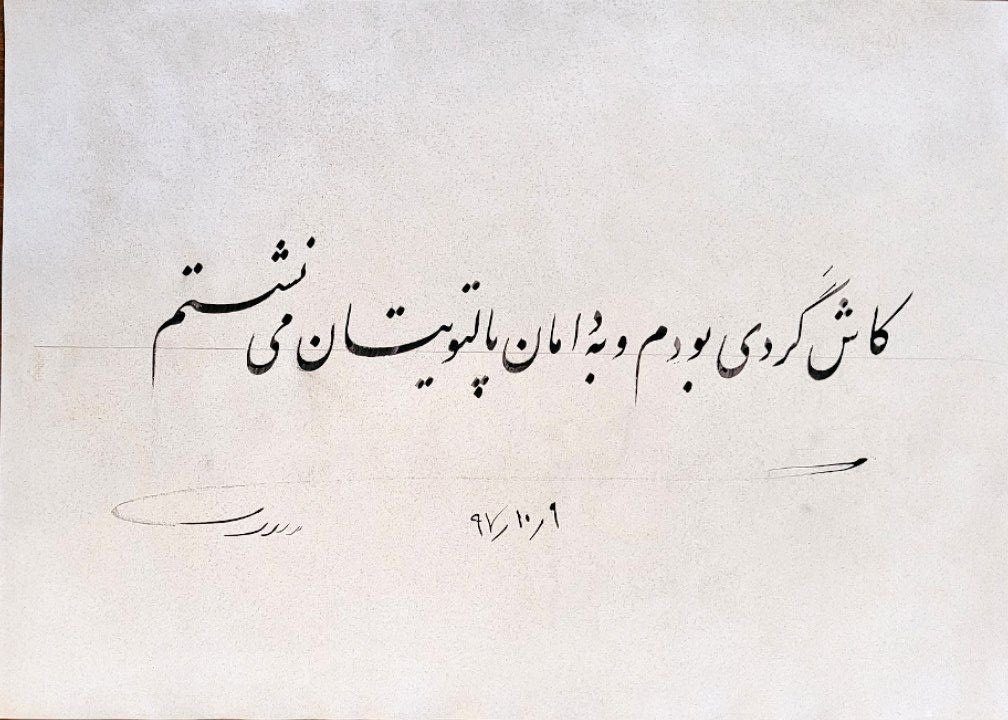 کاش گَردی بودم و به دامان پالتویتان می نشستم
۹۷٫۱۰٫۹